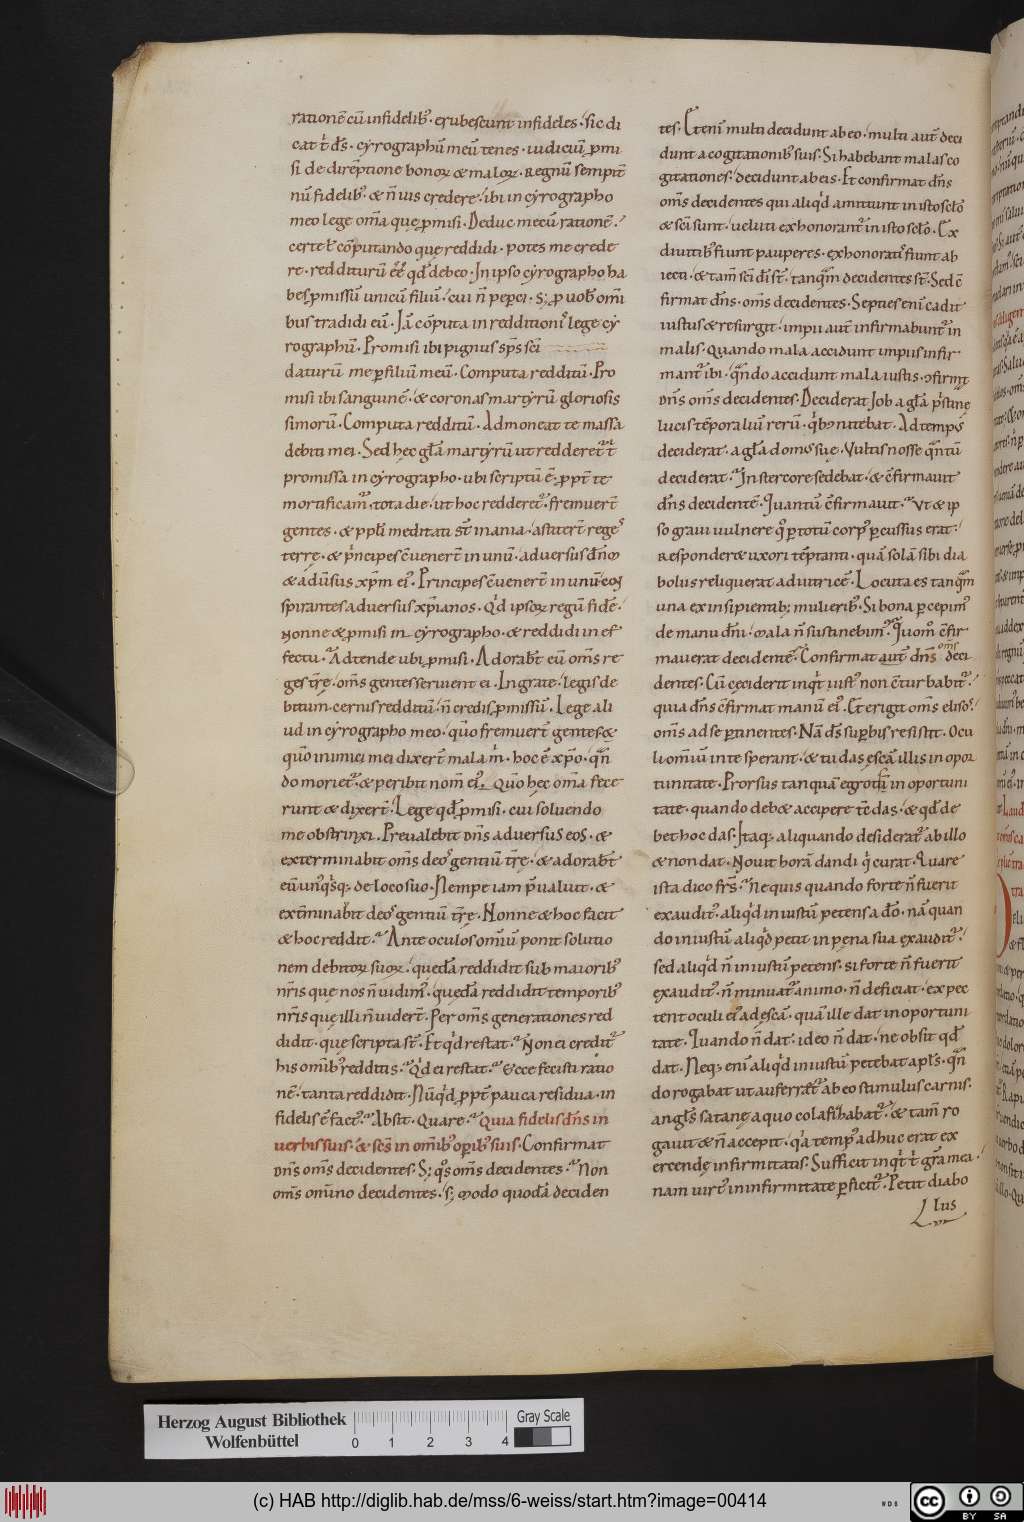 rationē cū infidelib᷒. erubescunt infideles. Sic di
cat t̄ d̄s. cẏrographū meū tenes. iudiciū ꝑmi
si de direptione bonoꝝ & maloꝝ. Regnū sempit̄
nū fidelib᷒. & n̄ uis credere. ibi in cẏrographo
meo lege om̄a que ꝑmisi. Deduc mecū rationē.
certe ł cōputando que reddidi. potes me crede
re. redditurū e̅e̅ qd̄ debeo. In ipso cẏrographo ha
bes ꝑmissū unicū filiū. cui n̄ peperci. S; ꝓ uob̄ om̄i
bus tradidi eū. Iā cōputa in redditioni᷒ lege cẏ
rographū. Promisi ibi pignus sp̄s sc̄i
daturū me ꝑ filiū meū. Computa redditū. Pro
misi ibi sanguinē. & coronas martẏrū gloriosis
simorū. Computa redditū. Admoneat te massa
debiti mei. Sed hec gła martẏrū ut redderet᷒
promissa in cẏrographo. ubi scriptū ē. ꝓpt̄ te
mortificam᷒ tota die. ut hoc redderet᷒. fremuert̄
gentes. & ppli meditati st̄ inania. astitert̄ rege᷒
terrę. & pͥncipes c̄uenert̄ in unū. aduersus dn̄m
& adūsus xp̄m ei᷒. Principes c̄uenert̄ in unū eoꝝ
spirantes aduersus xp̄ianos. Qͥd ipsoꝝ regū fidē.
Nonne & ꝓmisi in cẏrographo. & reddidi in ef
fectu. Adtende ubi ꝓmisi. Adorab̄t eū om̄s re
ges tr̄ę. om̄s gentes seruient ei. Ingrate. legis de
bitum. cernis redditū. n̄ credis ꝓmissū. Lege ali
ud in cẏrographo meo. quō fremuert̄ gentes. &
quō inimici mei dixert̄ mala m̄. hoc ē xp̄o. qn̄
do moriet᷒. & peribit nom̄ ei᷒. Quō hec om̄a fece
runt & dixert̄. Lege qd̄ ꝓmisi. cui soluendo
me obstrinxi. Preualebit dn̄s aduersus eos. &
exterminabit om̄s deos gentiū tr̄ę. & adorab̄t
eū unͥqsq; de loco suo. Nempe iam p̄ualuit. &
ext̄minabit deos gentiū tr̄ę. Nonne & hoc facit
& hoc reddit. Ante oculos om̄iū ponit solutio
nem debitoꝝ suoꝝ. quedā reddidit sub maiorib᷒
nr̄is que nos n̄ uidim᷒. quedā reddidit temporib᷒
nr̄is que illi n̄ uidert̄. Per om̄s generationes red
didit. que scripta st̄. Et qͥd restat. Non ei credit᷒
his om̄ib᷒ redditis. Qͥd ei restat. Ecce fecisti ratio
nē. tanta reddidit. Nūqͥd ꝓpt̄ pauca residua. in
fidelis ē fact᷒. Absit. Quare. Quia fidelis dn̄s in
uerbis suis. & sc̄s in om̄ib᷒ oꝑib᷒ suis. Confirmat
dn̄s om̄s decidentes. S; qͦs om̄s decidentes. Non
om̄s om̄ino decidentes. s; modo quodā deciden
tes. Etenī multi decidunt ab eo. multi aut̄ deci
dunt a cogitationib᷒ suis. Si habebant malas co
gitationes. decidunt ab eis. Et confirmat dn̄s
om̄s decidentes qui aliqͥd amittunt in isto sclo
& sc̄i sunt. ueluti exhonorant᷒ in isto sclo. Ex
diuitib᷒ fiunt pauperes. exhonorati᷒ fiunt ab
iecti. & tam̄ sc̄i di st̄. tanqm̄ decidentes st̄. Sed c̄
firmat dn̄s. om̄s decidentes. Septies eni cadit
iustus & resurgit. impii aut̄ infirmabunt᷒ in
malis. Quando mala accidunt impiis infir
mant᷒ ibi. qn̄do accidunt mala iustis. ꝯfirmat
dn̄s om̄s decidentes. Deciderat Iob a gła pͥstinę
lucis tēporaliū rerū. qͥb᷒ nitebat. Ad temp᷒
deciderat. a gła domᷤ suę. Vultis nosse qn̄tū
deciderat. In stercore sedebat. & c̄firmauit
dn̄s decidentē. Quantū c̄firmauit. Vt & ip
so graui uulnere qͦ ꝑ totū corp᷒ ꝑcussus erat.
Responder& uxori tēptanti. quā solā sibi dia
bolus reliquerat adiutricē. Locuta es tanqm̄
una ex insipientib; mulierib᷒. Si bona ꝑcepim᷒
de manu dn̄i. mala n̄ sustinebim᷒. Quom̄ c̄fir
mauerat decidentē. Confirmat aut̄ dn̄s om̄s deci
dentes. Cū ceciderit inqt̄ iust᷒ non c̄turbabit᷒.
quia dn̄s c̄firmat manū ei᷒. Et erigit om̄s elisos.
om̄s ad se ꝑtinentes. Nā d̄s suꝑbis resistit. Ocu
li om̄iū in te sperant. & tu das escā illis in opor
tunitate. Prorsus tanquā egrotū in oportuni
tate. quando deb& accipere t̄e das. & qd̄ de
bet hoc das. Itaq; aliquando desiderat᷒ ab illo
& non dat. Nouit horā dandi qͥ curat. Quare
ista dico fr̄s. Ne quis quando forte n̄ fuerit
exaudit᷒. aliqͥd iniustū petens a d̄o. nā quan
do iniustū aliqͥd petit in pena sua exaudit᷒.
sed aliqͥd n̄ iniustū petens. si forte n̄ fuerit
exaudit᷒. n̄ minuat᷒ animo. n̄ deficiat. expec
tent oculi ei᷒ ad escā. quā ille dat in oportuni
tate. Quando n̄ dat. ideo n̄ dat. ne obsit qd̄
dat. Neq; enī aliqͥd iniustū petebat apłs. qn̄
do rogabat ut auferret᷒ ab eo stimulus carnis.
angls̄ satanę a quo colafihabat᷒. & tam̄ ro
gauit & n̄ accepit. qͥa temp᷒ adhuc erat ex
ercendę infirmitatis. Sufficit inqt̄ t̄ gr̄a mea.
nam uirt᷒ in infirmitate ꝑficit᷒. Petit diabo
lus
Herzog August Bibliothek
Wolfenbüttel
0 1 2 3 4
Gray Scale
(c) HAB http://diglib.hab.de/mss/6-weiss/start.htm?image=00414
cc BY SA